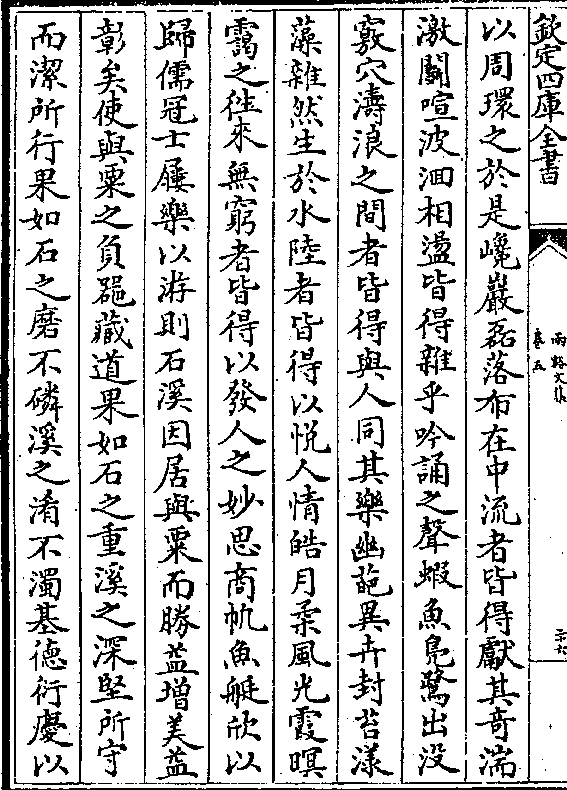 欽定四庫全書
兩谿文集
卷五
以周環之於是巉巖磊落布在中流者皆得獻其奇湍
激鬬喧波洄相盪皆得雜乎吟誦之聲蝦魚鳧鷖出没
竅穴濤浪之間者皆得與人同其樂幽葩異卉封苔漾
藻雜然生於水陸者皆得以悦人情皓月柔風光霞暝
靄之徃來無窮者皆得以發人之妙思商帆魚艇欣以
歸儒冠士屨樂以游則石溪因居與粟而勝益增美益
彰矣使與粟之負噐藏道果如石之重溪之深堅所守
而潔所行果如石之磨不磷溪之淆不濁基德衍慶以